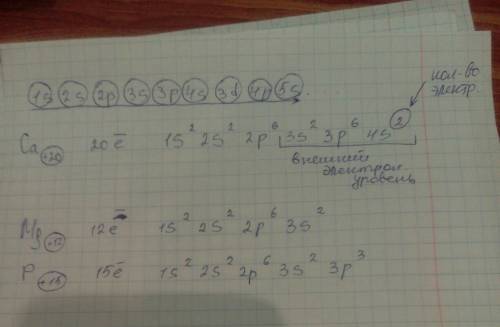 1s 2s 2p 3s 3p 4s 3d 4p 5s.
кол-во
электр.
Ca +20 20e̅ 1s² 2s² 2p⁶ 3s² 3p⁶ 4s²
внешний
электрон.
уровень
Mg +12 12e̅ 1s² 2s² 2p⁶ 3s²
P +15 15e̅ 1s² 2s² 2p⁶ 3s² 3p³